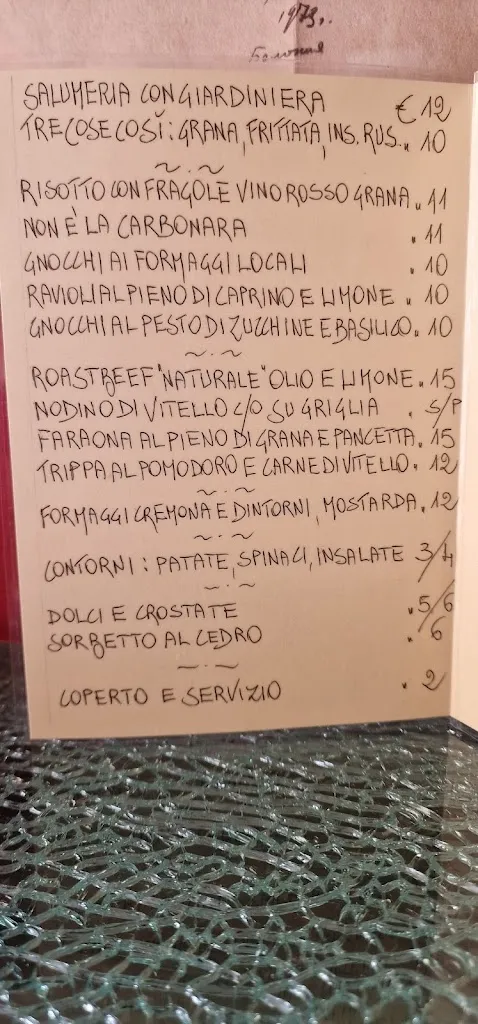 1973..
SALUMERIA CON GIARDINIERA € 12
TRE COSE COSÌ: GRANA, FRITTATA, INS. RUS. " 10
~ . ~
RISOTTO CON FRAGOLE VINO ROSSO GRANA " 11
NON È LA CARBONARA " 11
GNOCCHI AI FORMAGGI LOCALI " 10
RAVIOLI AL PIENO DI CAPRINO E LIMONE " 10
GNOCCHI AL PESTO DI ZUCCHINE E BASILICO " 10
~ . ~
ROASTBEEF "NATURALE" OLIO E LIMONE " 15
NODINO DI VITELLO C/O SU GRIGLIA " S/P
FARAONA AL PIENO DI GRANA E PANCETTA " 15
TRIPPA AL POMODORO E CARNE DI VITELLO " 12
~ . ~
FORMAGGI CREMONA E DINTORNI, MOSTARDA " 12
~ . ~
CONTORNI: PATATE, SPINACI, INSALATE 3/4
~ . ~
DOLCI E CROSTATE " 5/6
SORBETTO AL CEDRO " 6
~ . ~
COPERTO E SERVIZIO " 2